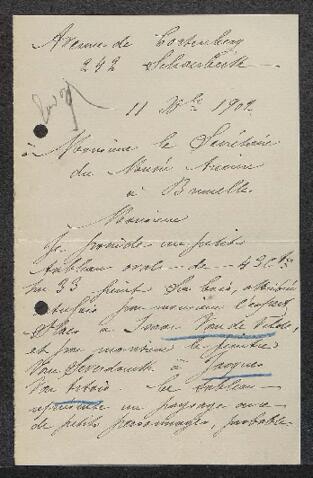 Avenue de Cortenberg
242 Schaerbeek
11 Xbre 190
à Monsieur le Secrétaire
du Musée Ancien
à Bruxelles
Monsieur
Je possède un petit
tableau ovale de 43 cts
sur 33 peint sur bois, attribué
par monsieur l'expert
à Van de Velde,
et par monsieur le peintre
Van à Jacques
Van Artois le tableau
représente un paysage avec
de petits personnages, probable-